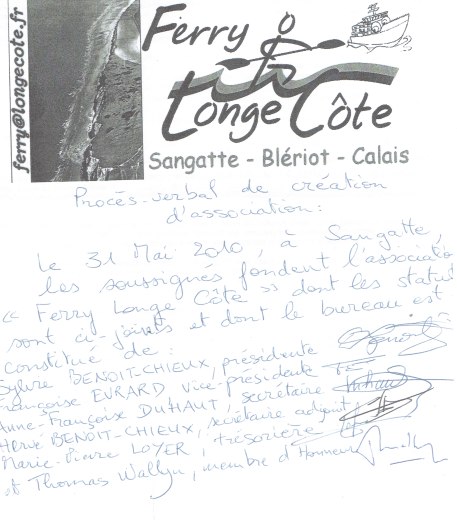 ferry@longecote.fr
Ferry
Longe Côte
Sangatte - Blériot - Calais
Procès-verbal de création
d'association:
Le 31 Mai 2010, à Sangatte,
les soussignés fondent l'associatio
« Ferry Longe Côte » dont les statu
sont ci-joints et dont le bureau est
constitué de :
Sylvie BENOIT-CHIEUX, présidente
Françoise EVRARD vice-présidente
Anne-Françoise DUHAUT, secrétaire
Hervé BENOIT-CHIEUX, secrétaire adjoint
Marie-Pierre LOYER, trésorière
et Thomas Wallyn, membre d'Honneur